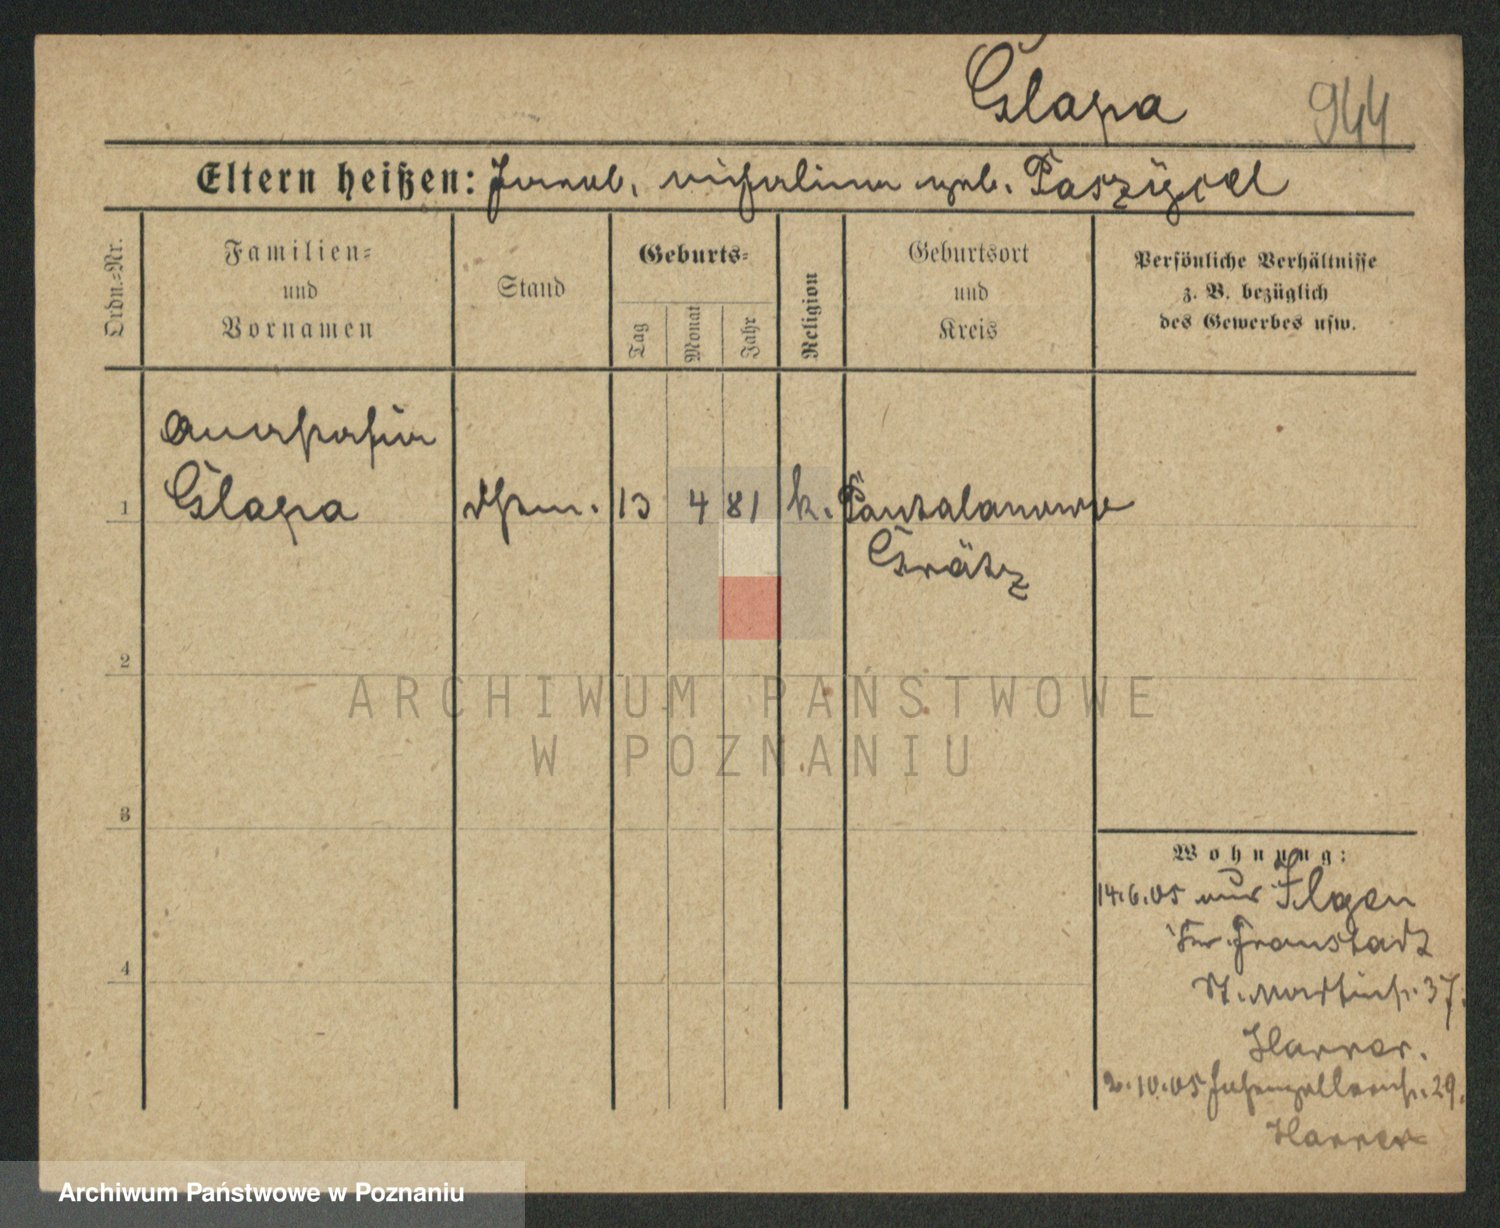 Glapa 944
Eltern heißen: Jacob, Michalina geb. Paszýcel
Ordn.-Nr.
Familien-
und
Vornamen
Stand
Geburts-
Tag
Monat
Jahr
Religion
Geburtsort
und
Kreis
Persönliche Verhältnisse
z. B. bezüglich
des Gewerbes usw.
Anastasia
1 Glapa 13 4 81 k.
Grätz
2
ARCHIWUM PAŃSTWOWE
W POZNANIU
3
4
Wohnung:
14.6.05 aus Ilgen
Kr. Fraustadt
St. Martinstr. 37.
Harrer.
2.10.05 Hohenzollernstr. 29.
Harrer
Archiwum Państwowe w Poznaniu